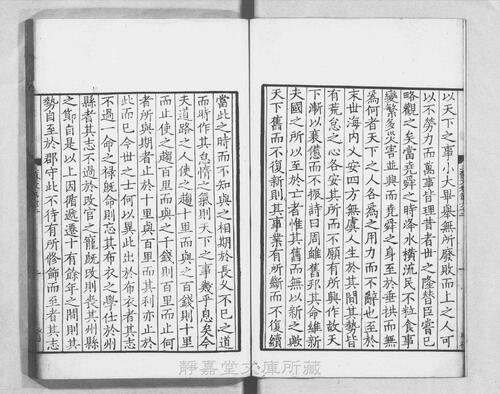 以天下之事小大畢舉無所廢敗而上之人可
以不勞力而萬事皆理昔者世之隆替臣嘗已
略觀之矣當堯舜之時洚水橫流民不粒食事
變繁多災害並興而堯舜之身至於垂拱而無
為何者天下之人各為之用力而不辭也至於
末世海內人安四方無虞人生於其間其勢皆
有荒怠之心各安其所而不願有所興作故天
下漸以衰憊而不振詩曰周雖舊邦其命維新
夫國之所以至於亡者惟其舊而無以新之歟
天下舊而不復新則其事業有所斷而不復續
當此之時而不知與之相期於長久不已之道
而時作其怠惰之氣則天下之事幾乎息矣今
夫道路之人使之趨十里而與之百錢則十里
而止使之趨百里而與之千錢則百里而止何
者所與期者止於十里與百里而其利亦止於
此而已今世之士何以異此出於布衣者其志
不過一命之祿旣命則忘其布衣之學仕於州
縣者其志不過於改官之寵旣改則喪其州縣
之節自是以上因循遞遷十有餘年之間則其
勢自至於郡守此不待有所修飾而至者其志
靜嘉堂文庫所蔵